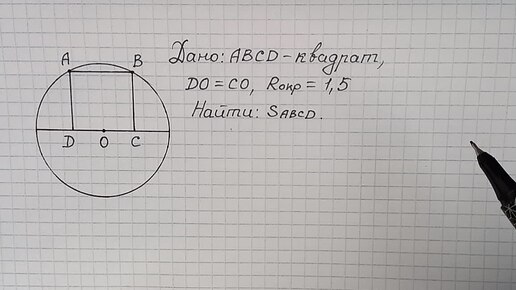 A B
Дано: ABCD - квадрат,
DO = CO, Rокр = 1,5
Найти: SABCD.
D O C